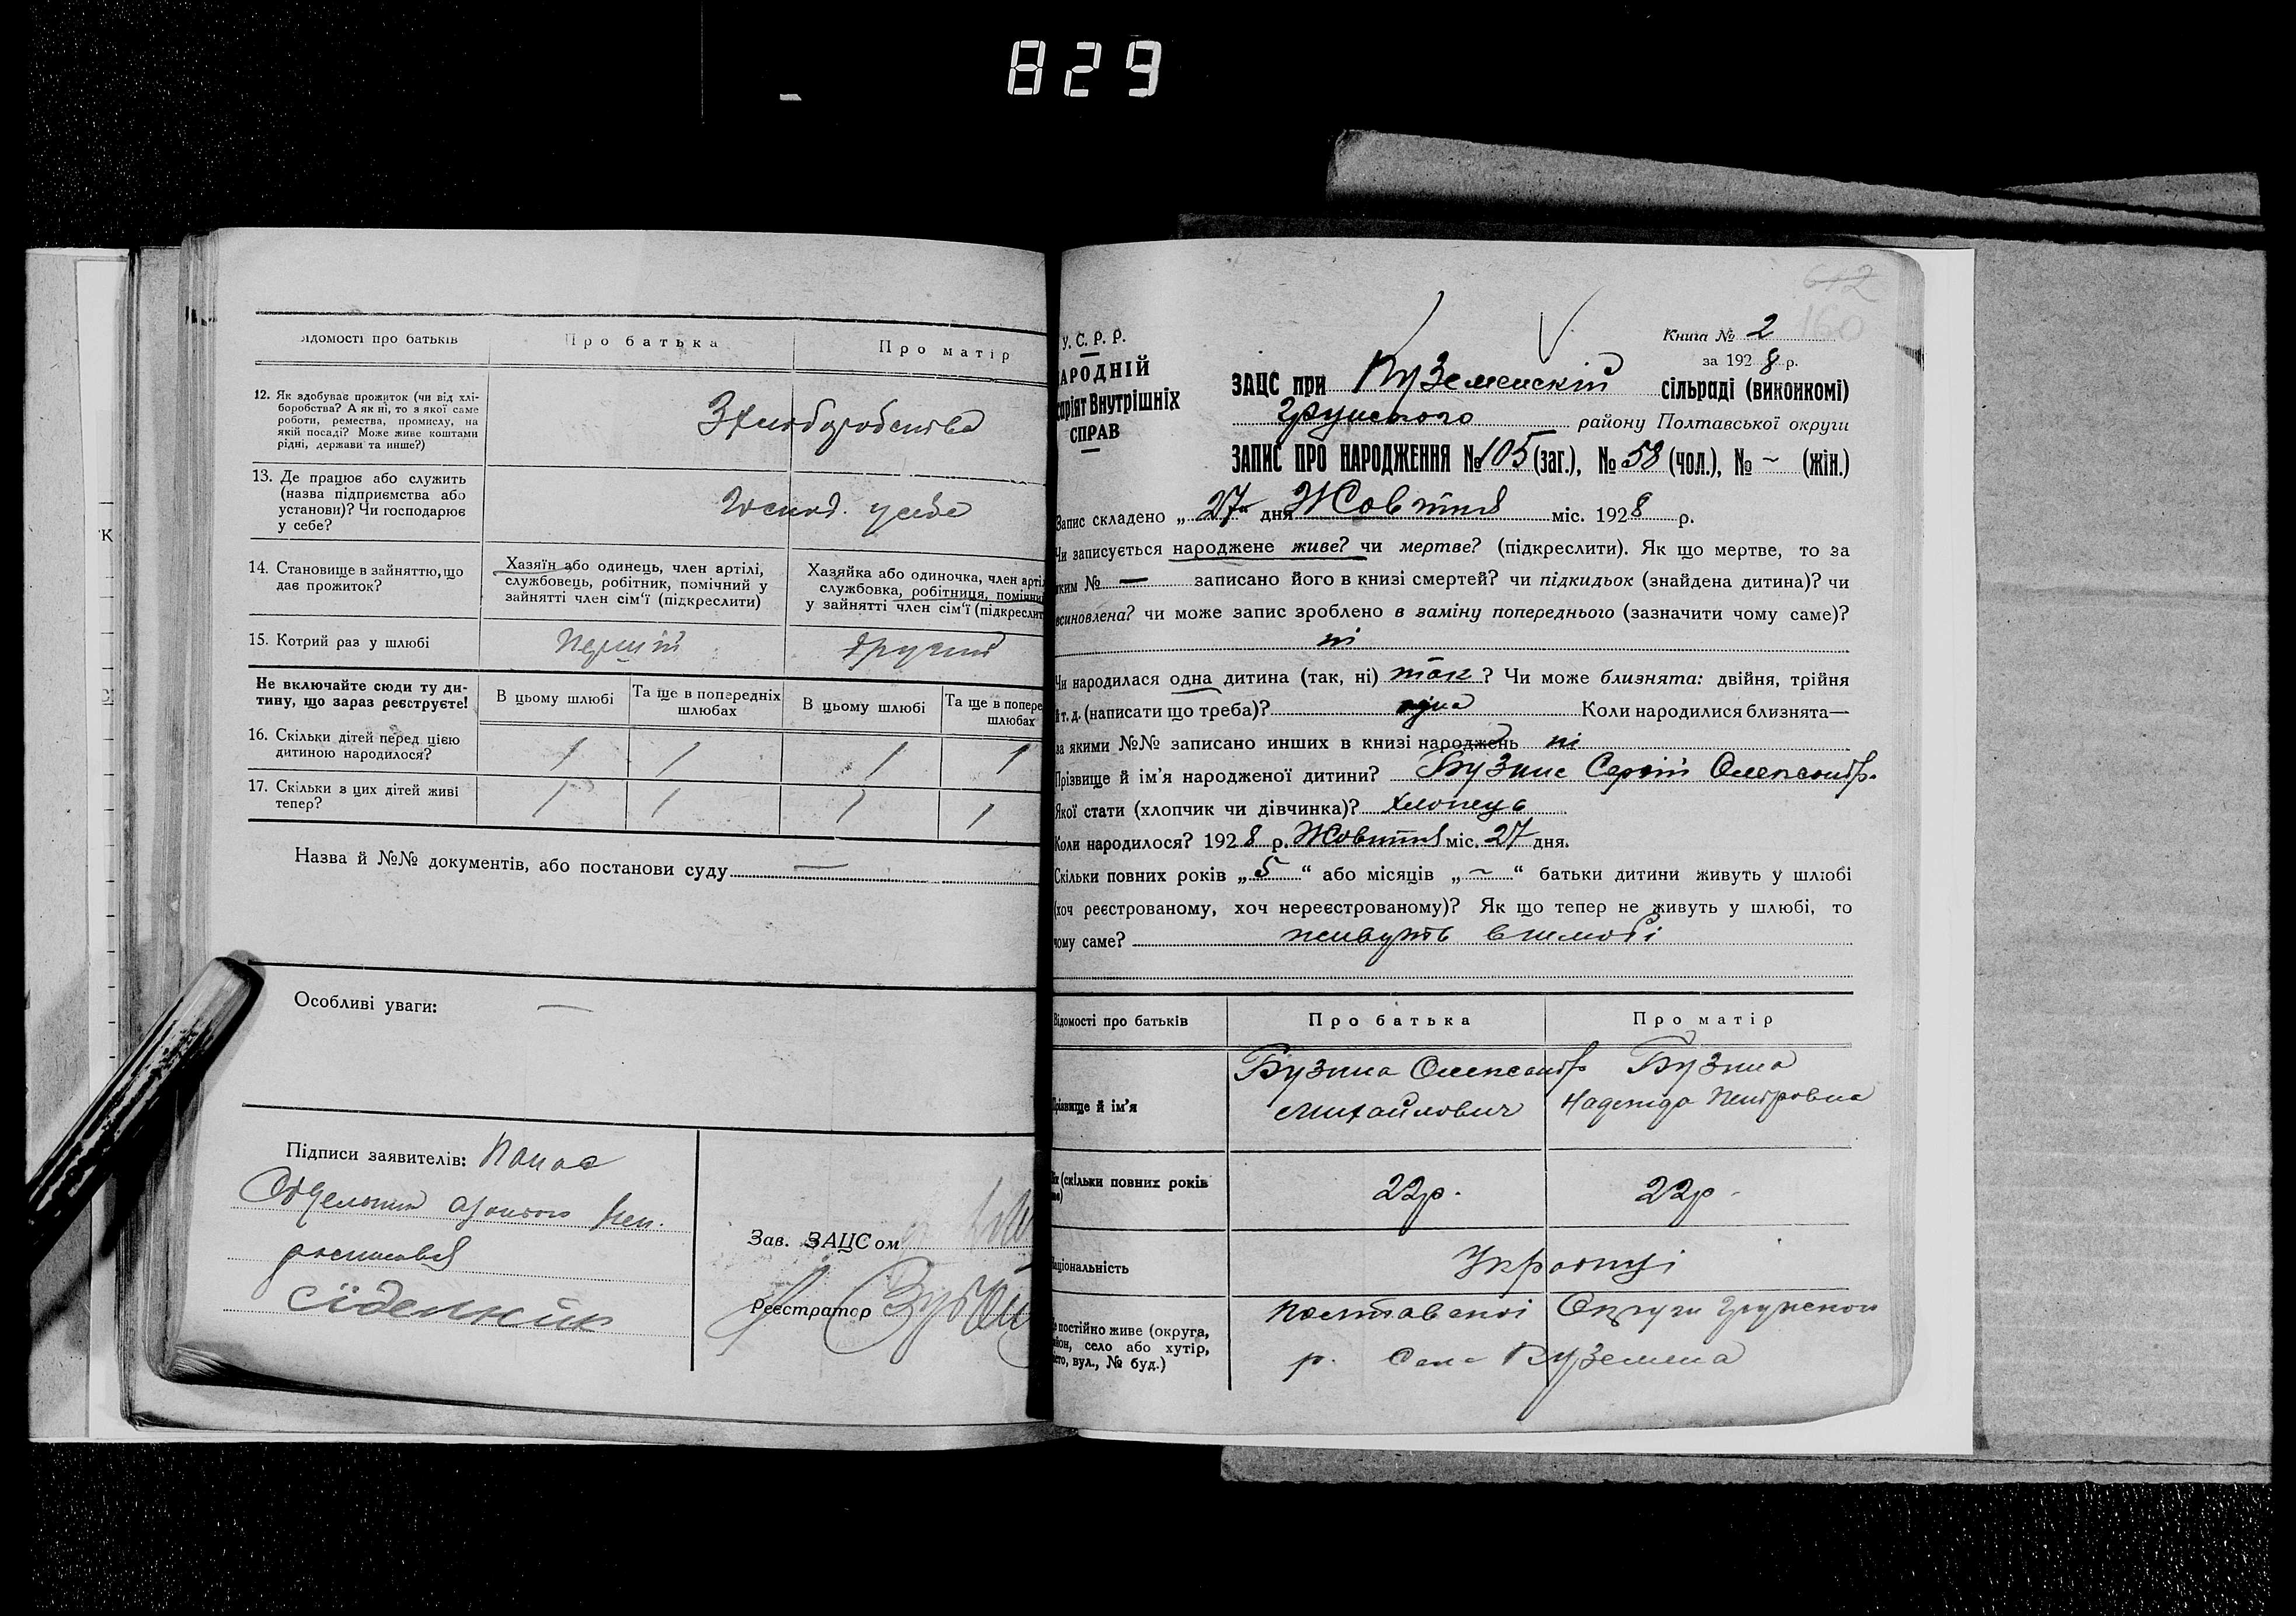 829
ідомості про батьків
Про батька
Про матір
12. Як здобуває прожиток (чи від хлі-
боробства? А як ні, то з якої саме
роботи, ремества, промислу, на
якій посаді? Може живе коштами
рідні, держави та инше?)
З хлиборобства
13. Де працює або служить
(назва підприємства або
установи)? Чи господарює
у себе?
господ. у себе
14. Становище в зайняттю, що
дає прожиток?
Хазяїн або одинець, член артілі,
службовець, робітник, помічний у
зайнятті член сім'ї (підкреслити)
Хазяйка або одиночка, член арті
службовка, робітниця, помічни
у зайнятті член сім'ї (підкреслит
15. Котрий раз у шлюбі
першій
другий
Не включайте сюди ту ди-
тину, що зараз реєструєте!
В цьому шлюбі
Та ще в попередніх
шлюбах
В цьому шлюбі
Та ще в попере
шлюбах
16. Скільки дітей перед цією
дитиною народилося?
/ / / /
17. Скільки з цих дітей живі
тепер?
/ / / /
Назва й №№ документів, або постанови суду —
Особливі уваги: —
Підписи заявителів: Панас
неп.
росписався
Зав. ЗАЦСом
Реєстратор
612
160
У. С. Р. Р.
АРОДНІЙ
сарiят Внутрішніх
СПРАВ
Книга № 2
за 1928 р.
ЗАЦС при Куземенскій сільраді (виконкомі)
Грунского району Полтавської округи
ЗАПИС ПРО НАРОДЖЕННЯ № 105 (заг.), № 58 (чол.), № ~ (жін.)
Запис складено „27" дня Жовтня міс. 1928 р.
Чи записується народжене живе? чи мертве? (підкреслити). Як що мертве, то за
яким № — записано його в книзі смертей? чи підкидьок (знайдена дитина)? чи
всиновлена? чи може запис зроблено в заміну попереднього (зазначити чому саме)?
ні
Чи народилася одна дитина (так, ні) так? Чи може близнята: двійня, трійня
й т. д. (написати що треба)? одна Коли народилися близнята—
за якими №№ записано инших в книзі народжень ні
Прізвище й ім'я народженої дитини? Бузина Сергій Олександр.
Якої стати (хлопчик чи дівчинка)? хлопець
Коли народилося? 1928 р. Жовтня міс. 27 дня.
Скільки повних років „5" або місяців „~" батьки дитини живуть у шлюбі
(хоч реєстрованому, хоч нереєстрованому)? Як що тепер не живуть у шлюбі, то
чому саме? живуть в шлюбі
Відомості про батьків
Про батька
Про матір
Прізвище й ім'я
Бузина Олександр
Михайлович
Бузина
Надежда Петровна
Вік (скільки повних років
22р.
22р.
Національність
Українці
постійно живе (округа,
район, село або хутір,
місто, вул., № буд.)
Полтавскоі Округи Грунского
р. Село Куземена